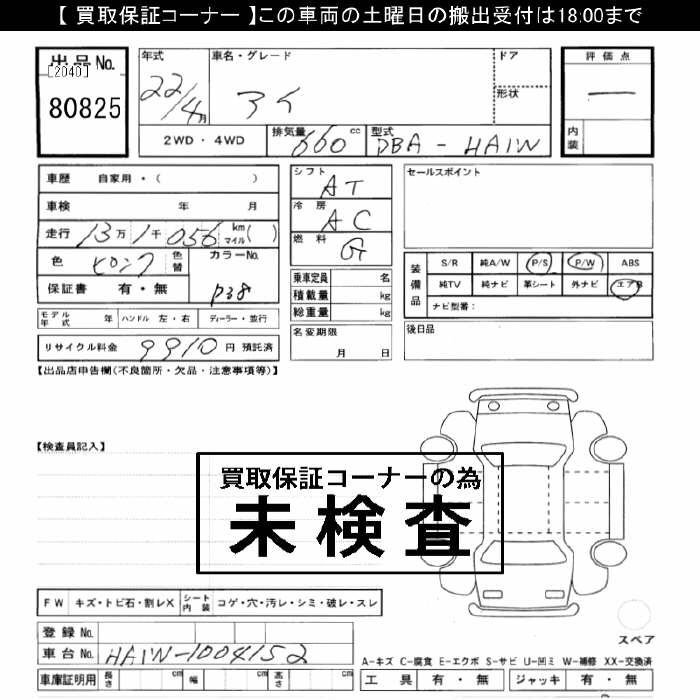 【 買取保証コーナー 】この車両の土曜日の搬出受付は18:00まで
出品No.
[2040]
80825
年式
22/4月
車名・グレード
アイ
ドア
形状
2WD ・ 4WD
排気量 660 cc
型式 DBA - HA1W
評価点
—
内装
車歴 自家用・( )
車検 年 月
走行 13万1千056 km マイル( )
色 ピンク 色替
カラーNo.
P38
保証書 有・無
モデル年式 年 ハンドル 左・右 ディーラー・並行
リサイクル料金 9910 円 預託済
シフト AT
冷房 AC
燃料 G
乗車定員 名
積載量 kg
総重量 kg
名変期限
月 日
セールスポイント
装備品
S/R 純A/W P/S P/W ABS
純TV 純ナビ 革シート 外ナビ エアB
ナビ型番:
後日品
【出品店申告欄(不良箇所・欠品・注意事項等)】
【検査員記入】
買取保証コーナーの為
未検査
FW キズ・トビ石・割レX シート内装 コゲ・穴・汚レ・シミ・破レ・スレ
登録No.
車台No. HA1W-1004152
車庫証明用 長さ cm 幅 cm 高さ cm
スペア
A-キズ C-腐食 E-エクボ S-サビ U-凹ミ W-補修 XX-交換済
工具 有・無 ジャッキ 有・無